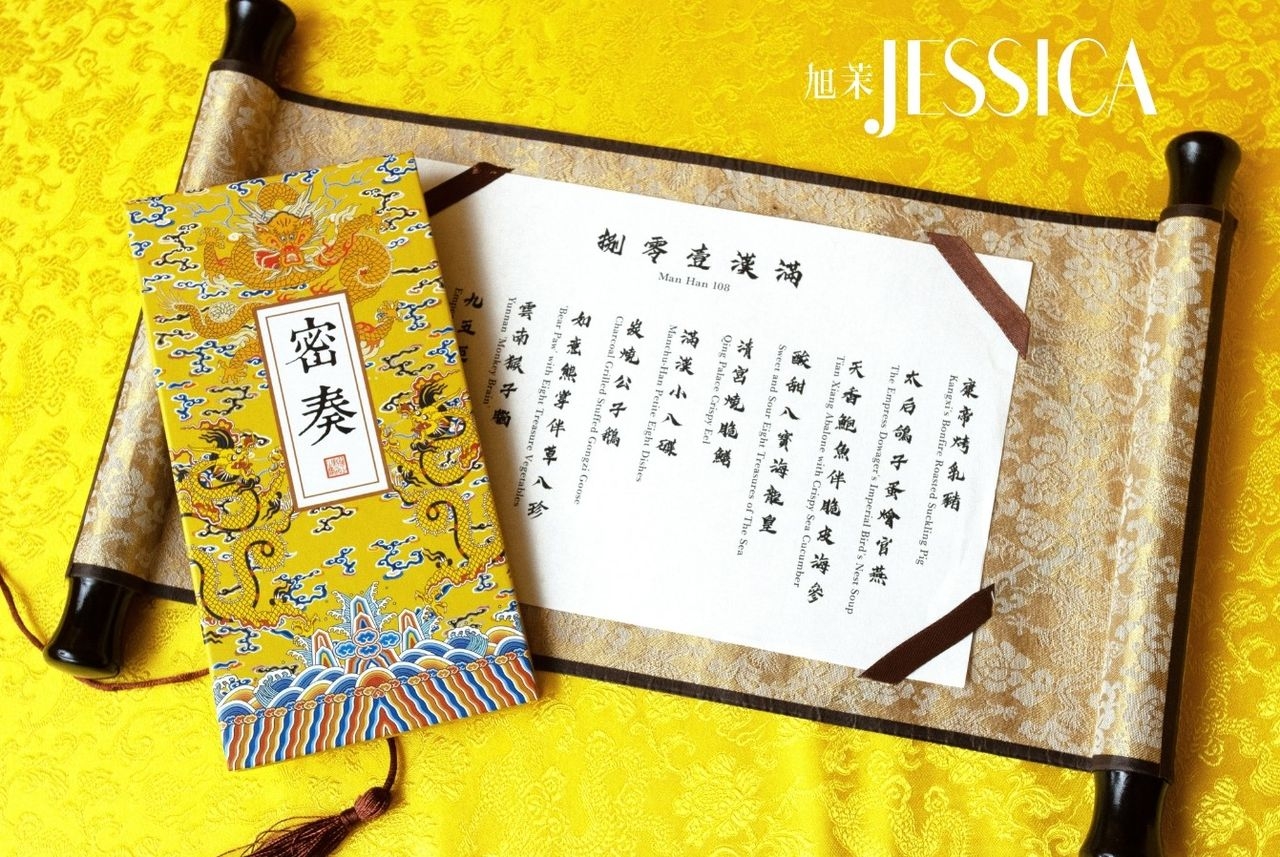 旭茉 JESSICA
滿漢壹零捌
Man Han 108
康帝烤乳豬
Kangxi's Bonfire Roasted Suckling Pig
太后鴿子蛋燴官燕
The Empress Dowager's Imperial Bird's Nest Soup
天香鮑魚伴脆皮海參
Tian Xiang Abalone with Crispy Sea Cucumber
酸甜八寶海龍皇
Sweet and Sour Eight Treasures of The Sea
清宮燒脆鱔
Qing Palace Crispy Eel
滿漢小八碟
Manchu-Han Petite Eight Dishes
炭燒公子鵝
Charcoal Grilled Stuffed Gongzi Goose
如意熊掌伴草八珍
'Bear Paw' with Eight Treasure Vegetables
雲南猴子腦
Yunnan 'Monkey Brain'
九五
密奏